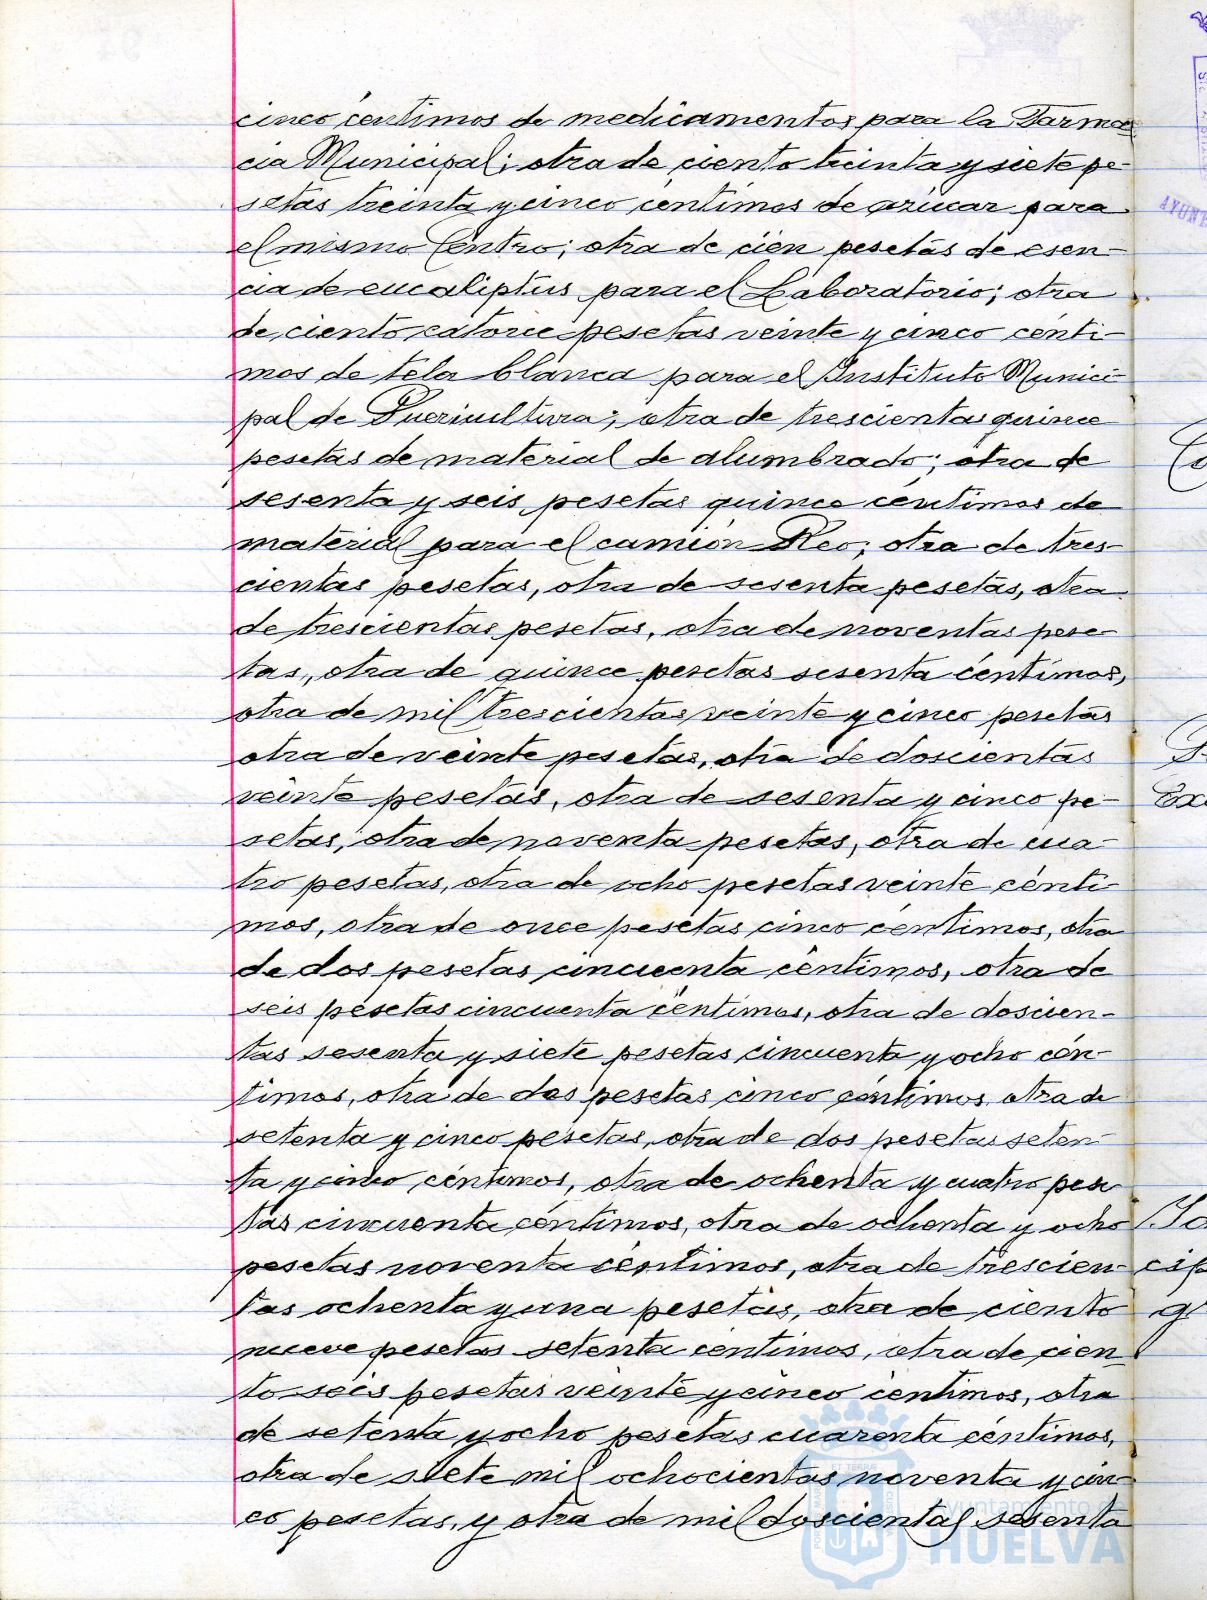 cinco céntimos de medicamentos para la Farma
cia Municipal; otra de ciento treinta y siete pe-
setas treinta y cinco céntimos de azúcar para
el mismo Centro; otra de cien pesetas de esen-
cia de eucaliptus para el Laboratorio; otra
de ciento catorce pesetas veinte y cinco cénti-
mos de tela blanca para el Instituto Munici-
pal de Puericultura; otra de trescientas quince
pesetas de material de alumbrado; otra de
sesenta y seis pesetas quince céntimos de
material para el camión Reo; otra de tres-
cientas pesetas, otra de sesenta pesetas, otra
de trescientas pesetas, otra de noventas pese-
tas, otra de quince pesetas sesenta céntimos,
otra de mil trescientas veinte y cinco pesetas
otra de veinte pesetas, otra de doscientas
veinte pesetas, otra de sesenta y cinco pe-
setas, otra de noventa pesetas, otra de cua-
tro pesetas, otra de ocho pesetas veinte cénti-
mos, otra de once pesetas cinco céntimos, otra
de dos pesetas cincuenta céntimos, otra de
seis pesetas cincuenta céntimos, otra de doscien-
tas sesenta y siete pesetas cincuenta y ocho cén-
timos, otra de dos pesetas cinco céntimos, otra de
setenta y cinco pesetas, otra de dos pesetas seten-
ta y cinco céntimos, otra de ochenta y cuatro pese
tas cincuenta céntimos, otra de ochenta y ocho
pesetas noventa céntimos, otra de trescien-
tas ochenta y una pesetas, otra de ciento
nueve pesetas setenta centimos, otra de cien-
to seis pesetas veinte y cinco centimos, otra
de setenta y ocho pesetas cuarenta céntimos,
otra de siete mil ochocientas noventa y cin-
co pesetas, y otra de mil doscientas sesenta
Ayuntamiento de
HUELVA